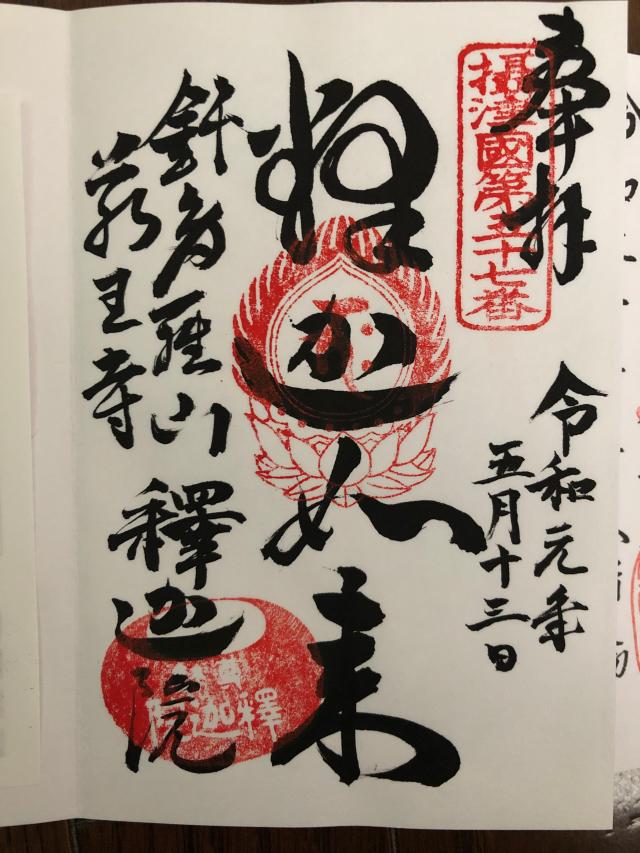 奉拝
攝津國第五十七番
令和元年
五月十三日
釋迦如来
鉢多羅山
若王寺
釋迦院
釋迦院